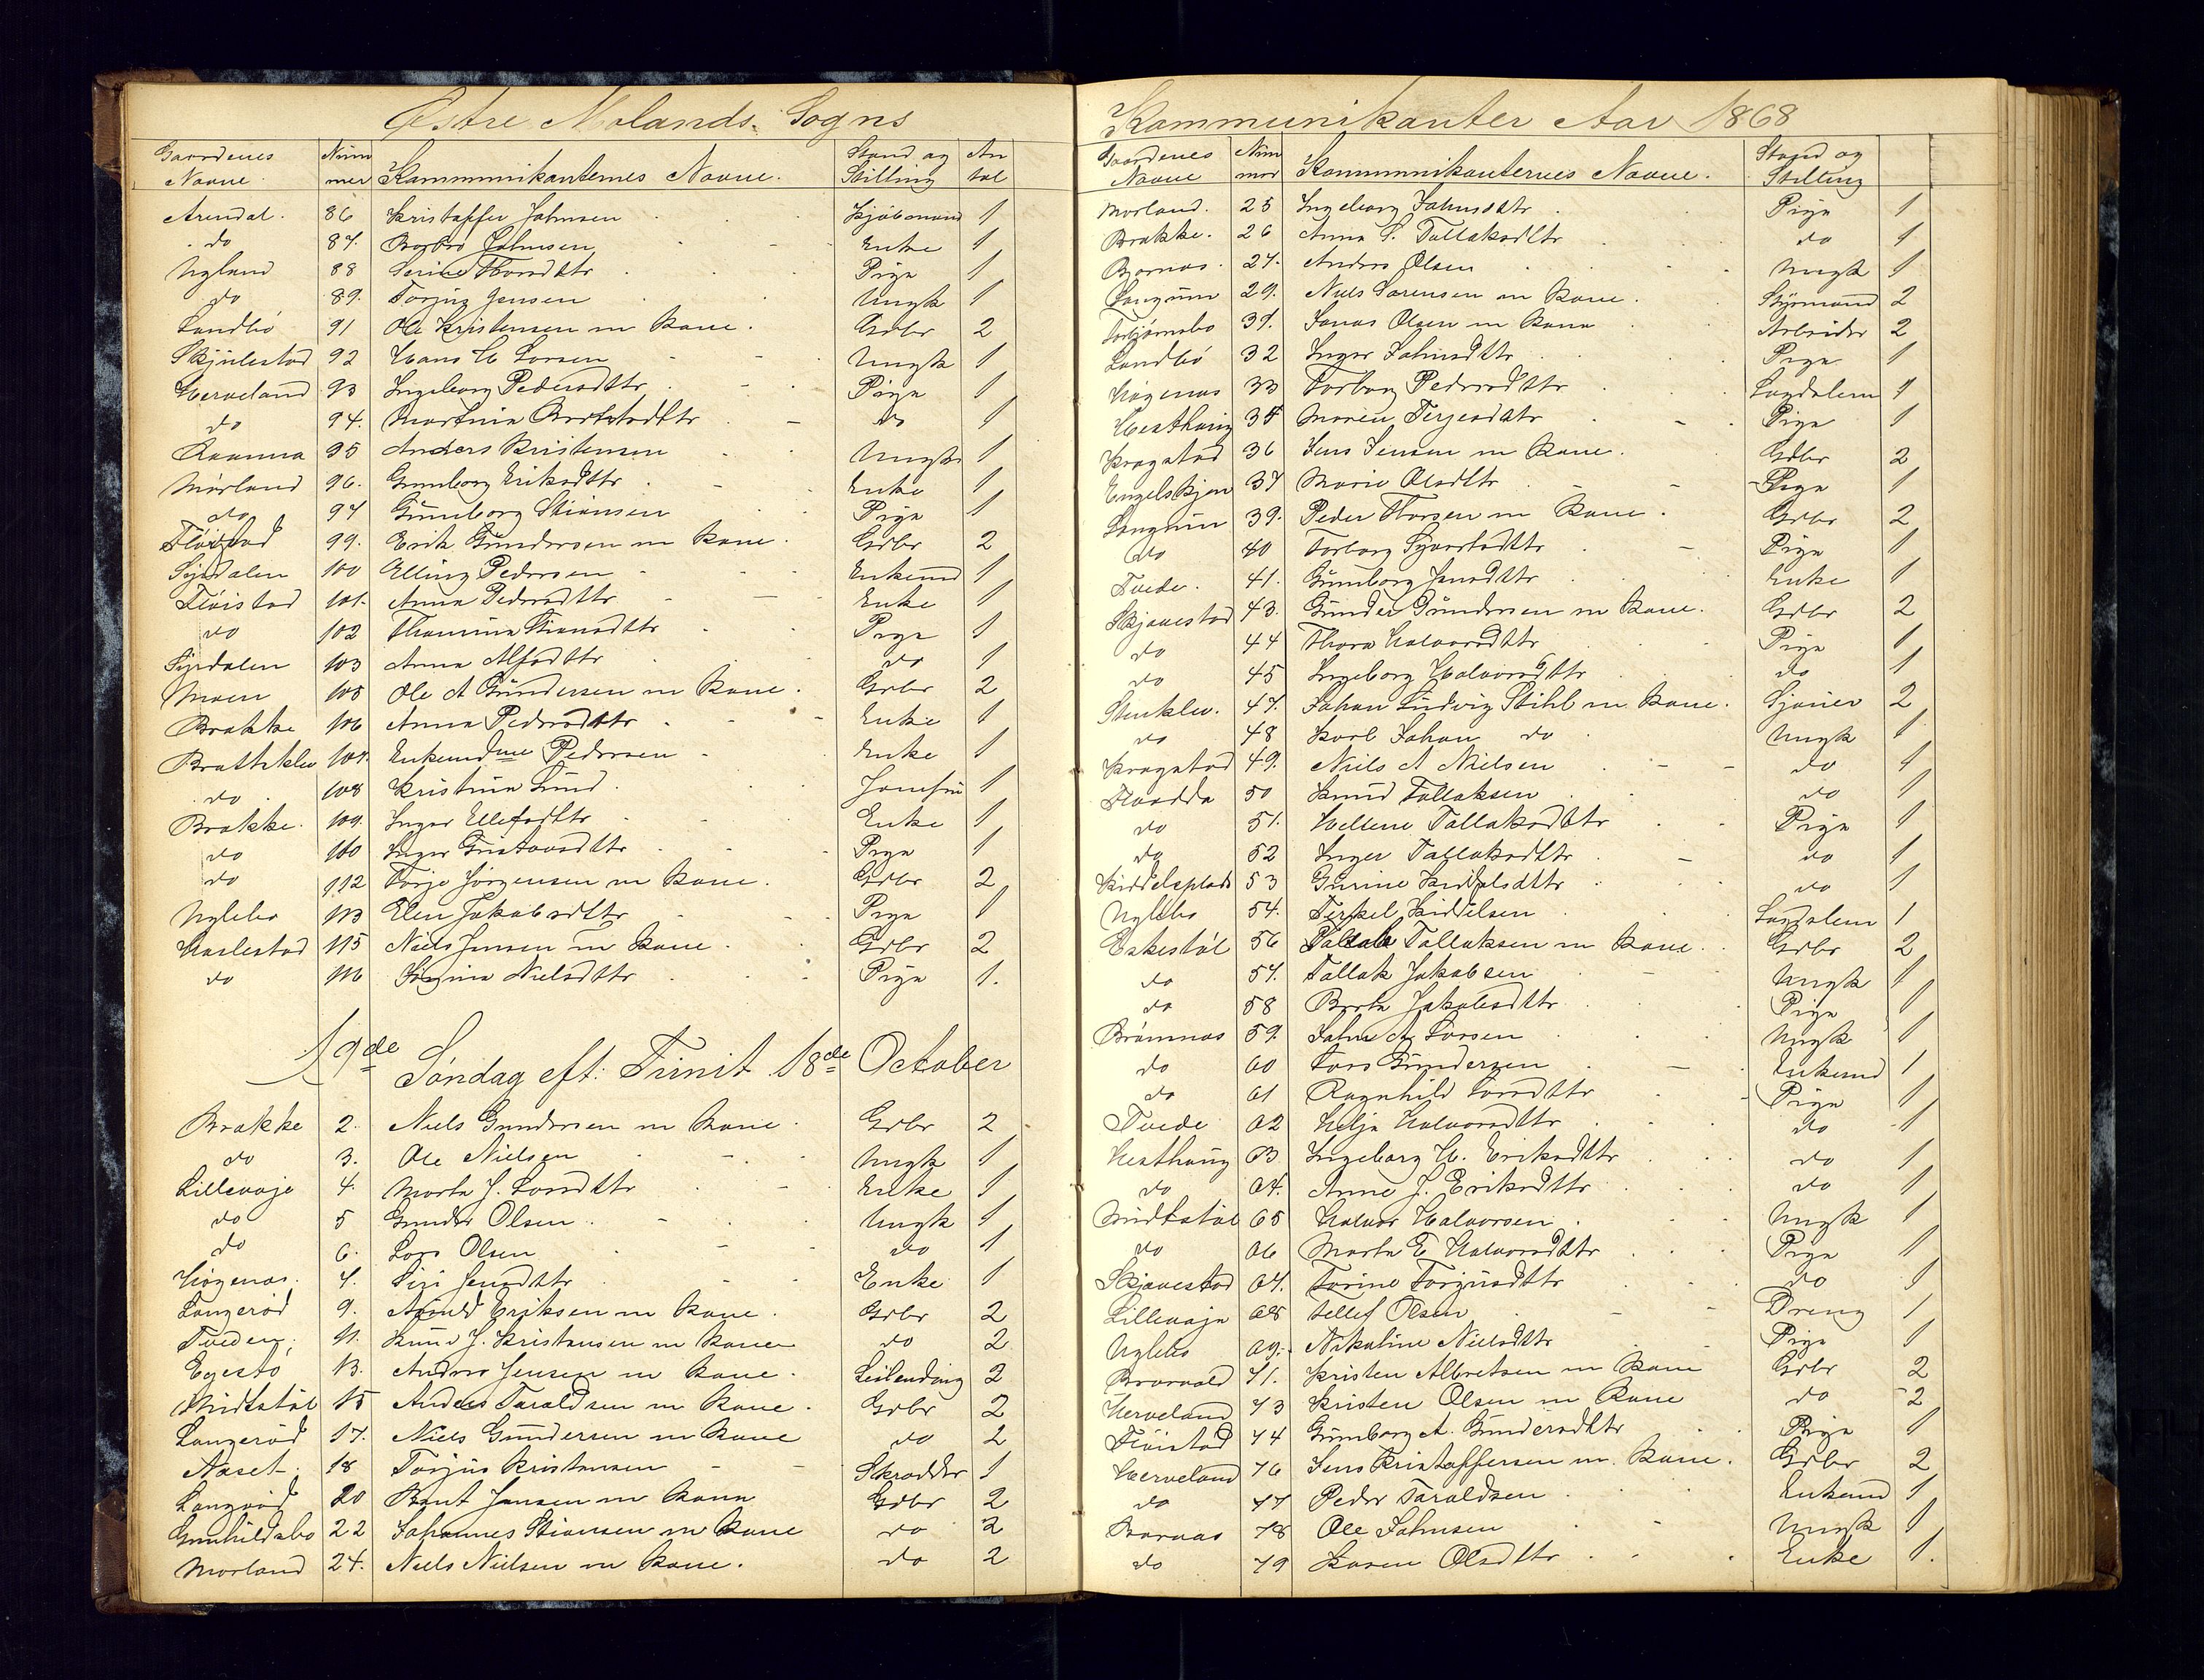 Østre Molands Sogns
Gaardenes Navne Num mer Kommunikanternes Navne. Stand og Stilling An tal
Arendal. 86 Kristoffer Johnsen Kjöbmand 1
do 87. Johnsen Enke 1
Nyland 88 Serine Thorsdttr Pige 1
do 89. Torjus Jensen Ungk 1
Landbö 91 Ole Kristensen m Kone. Gdbr 2
Skjulestad 92 Hans H Larsen Ungk 1
Herveland 93 Ingeborg Pedersdttr Pige 1
do 94. Martnia do 1
95 Anders Kristensen Ungk 1
Mörland 96. Gunborg Eriksdttr Enke 1
do 97 Gunborg Stiansen Pige 1
Flöistad 99. Erik Gundersen m Kone. Gdbr 2
Syrdalen 100 Elling Pedersen Enkemd 1
Flöistad 101. Anna Pedersdttr Enke 1
do 102 Thomine Stiansdttr Pige 1
Syrdalen 103 Anna Alfsdttr do 1
Moen 105 Ole A Gundersen m Kone. Gdbr 2
Brække 106 Anna Pedersdttr Enke 1
Bratteklev 107. Pedersen Enke 1
do 108 Kristine Lund Jomfru 1
Brække. 109. Inger Ellefsdttr Enke 1
do 110 Inger Gustavsdttr Pige 1
do 112 Terje Jörgensen m Kone. Gdbr 2
Nylebo 113 Elen Jakobsdttr Pige 1
Harlestad 115 Niels Jensen m Kone. Gdbr 2
do 116 Nielsdttr Pige 1.
19de Söndag eft: Trinit 18de October
Brække 2. Niels Gundersen m Kone. Gdbr 2
do 3. Ole Nielsen Ungk 1
Lillevaje 4. Marta J. Larsdttr Enke 1
do 5 Gunder Olsen Ungk 1
do 6. Lars Olsen do 1
Högenæs. 7. Siri Jensdttr Enke 1
Langeröd 9. Anund Eriksen m Kone. Gdbr 2
Tveden; 11. Knud J. Kristensen m Kone do 2
Egestö 13. Anders Jensen m Kone. Leilending 2
Midtstöl 15 Anders Taraldsen m Kone. Gdbr 2
Langeröd 17. Niels Gundersen m Kone do 2
Næset. 18 Torjus Kristensen Skrædder 1
Langeröd 20 Bent Jensen m Kone Gdbr 2
Gunhildsbo 22 Johannes Stiansen m Kone do 2
Morland 24. Niels Nielsen m Kone. do 2
Kommunikanter Aar 1868
Gaardenes Navne Num mer Kommunikanternes Navne. Stand og Stilling
Morland. 25 Ingeborg Johnsdttr Pige 1
Brække. 26 Anna S. Tallaksdttr do 1
Bjornæs. 27. Anders Olsen Ungk 1
Langum 29. Niels Sörensen m Kone. Styrmand 2
Torbjörnsbo 31. Jonas Olsen m Kone Arbeider 2
Landbö 32 Inger Johnsdttr Pige 1
Högenæs 33 Torborg Pedersdttr Lægdslem 1
Hesthaug 34 Maren Terjesdttr Pige 1
Kragstad 36 Jens Jensen m Kone. Gdbr 2
Engelskjön 37 Marie Olsdttr Pige 1
Langum 39. Peder Thorsen m Kone. Gdbr 2
do 40 Torborg Syvertsdttr Pige 1
Tvede 41. Gunborg Jensdttr Enke 1
Skjævestad 43. Gunder Gundersen m Kone. Gdbr 2
do 44 Thora Halvorsdttr Pige 1
do 45 Ingeborg Halvorsdttr do 1
Stenklev. 47. Johan Ludvig Stihl m Kone. Gjörtler 2
do 48 Karl Johan do Ungk 1
Kragstad 49. Niels A Nielsen do 1
Flaadda 50 Knud Tallaksen do 1
do 51. Hellene Tallaksdttr Pige 1
do 52 Inger Tallaksdttr do 1
Kiddelsplads 53 Gurine Kiddelsdttr do 1
Nylebo 54. Terkel Kiddelsen Lægdslem 1
Eskestöl 56 Tallak Tallaksen m Kone. Gdbr 2
do 57. Tallak Jakobsen Ungk 1
do 58 Berte Jakobsdttr Pige 1
Brömnæs 59. John A Larsen Ungk 1
do 60 Lars Gundersen Enkemd 1
do 61 Ragnhild Larsdttr Pige 1
Tvede 62 Helje Halvorsdttr do 1
Hesthaug 63 Ingeborg H. Eriksdttr do 1
do 64. Anne J. Eriksdttr do 1
Midtstöl 65 Halvor Halvorsen Ungk 1
do 66 Marta E Halvorsdttr Pige 1
Skjævestad 67. Torine Torjusdttr do 1
Lillevaje 68 Tellef Olsen Dreng 1
Nylebo 69. Nikoline Nielsdttr Pige 1
71. Kristen Albretsen m Kone Gdbr 2
Herveland 73 Kristen Olsen m Kone do 2
Flöistad 74 Gunborg A. Gundersdttr Pige 1
Herveland 76 Jens Kristoffersen m. Kone. Gdbr 2
do 77 Peder Taraldsen Enkemd 1
78 Ole Johnsen Ungk 1
do 79 Karen Olsdttr Enke 1.